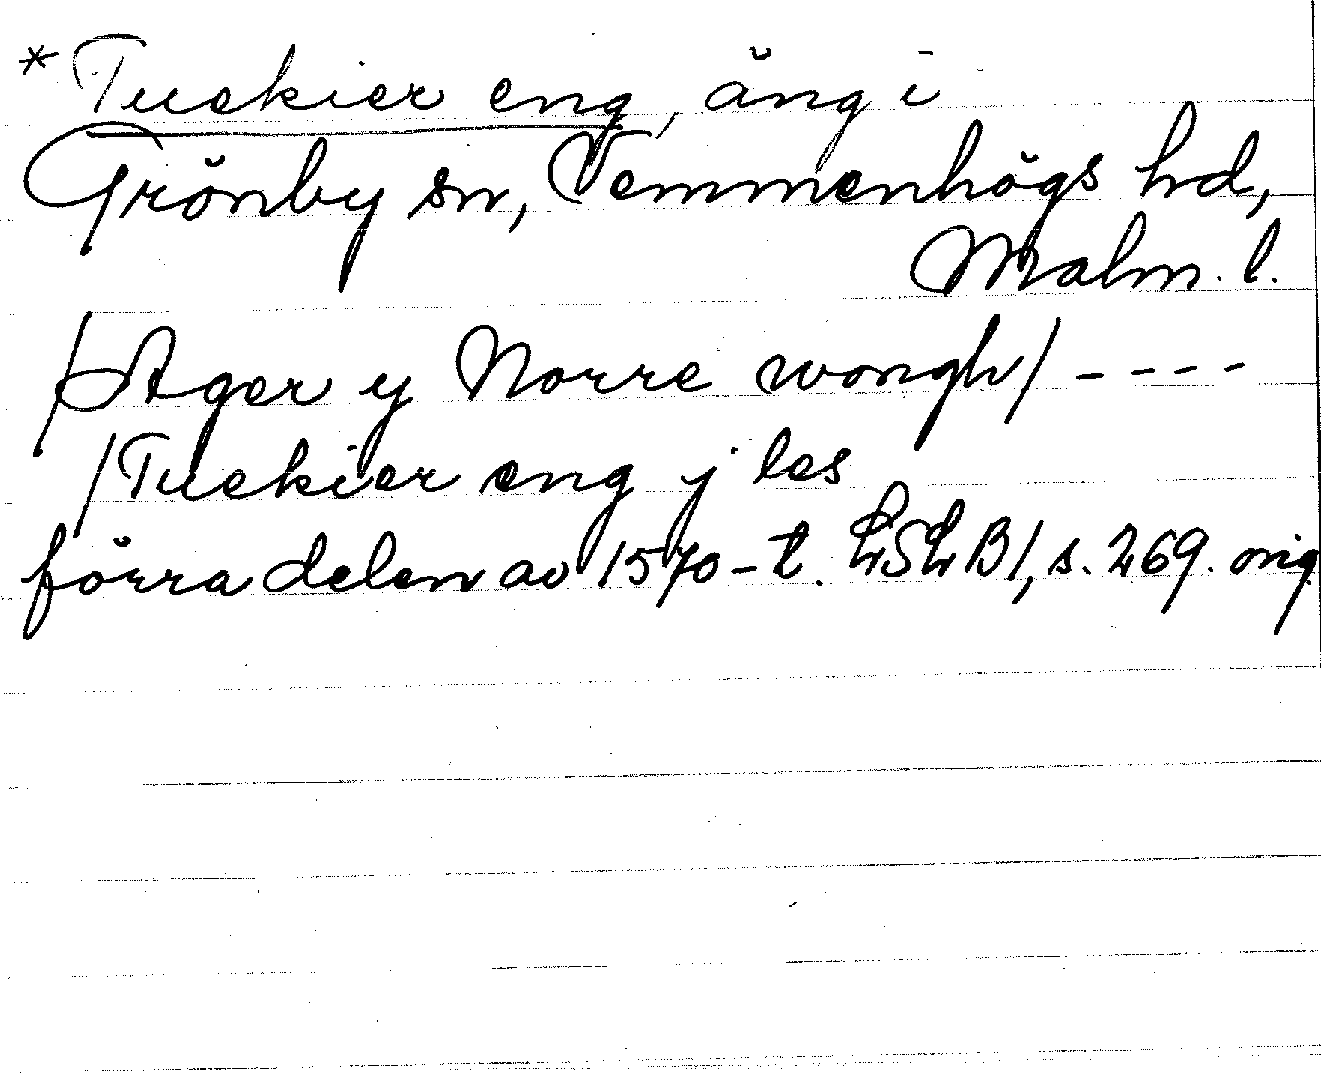 * Tuekier eng, äng i
Grönby sn, Vemmenhögs hd,
Malm. l.
/Ager y Norre wongh/ ----
/Tuekier eng j les
förra delen av 1570-t. LSLB/, s. 269. orig.